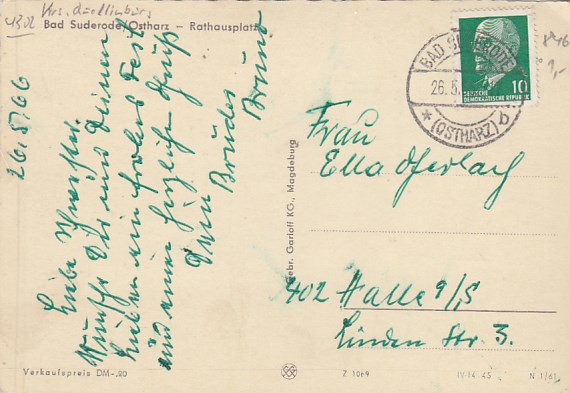 4302 Krs. Quedlinburg
Bad Suderode/Ostharz – Rathausplatz
26.5.66
Liebe Schwester.
Wünsche Dir und Deinen
Lieben ein frohes Fest
und einen herzlichen Gruß
Dein Bruder
Bruno
BAD SUDERODE
26.5.
* (OSTHARZ) b
DEUTSCHE
DEMOKRATISCHE REPUBLIK
10
1,-
Frau
Ella
402 Halle a/S
Linden Str. 3.
Gebr. Garloff KG., Magdeburg
Verkaufspreis DM -,20
Z 1069